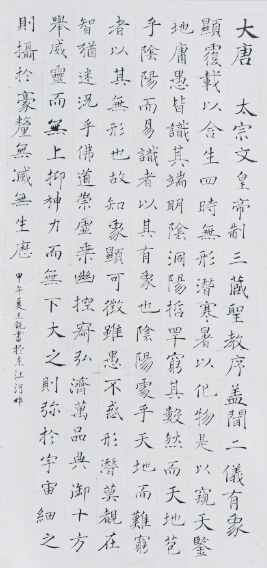 大唐 太宗文皇帝制三藏聖教序盖聞二儀有象
顯覆載以含生四時無形潛寒暑以化物是以窺天鑒
地庸愚皆識其端明陰洞陽賢哲罕窮其數然而天地苞
乎陰陽而易識者以其有象也陰陽處乎天地而難窮
者以其無形也故知象顯可徵雖愚不惑形潛莫覩在
智猶迷況乎佛道崇虛乘幽控寂弘濟萬品典御十方
舉威靈而無上抑神力而無下大之則弥於宇宙細之
則攝於豪釐無滅無生歷
甲午夏王書於東江河畔